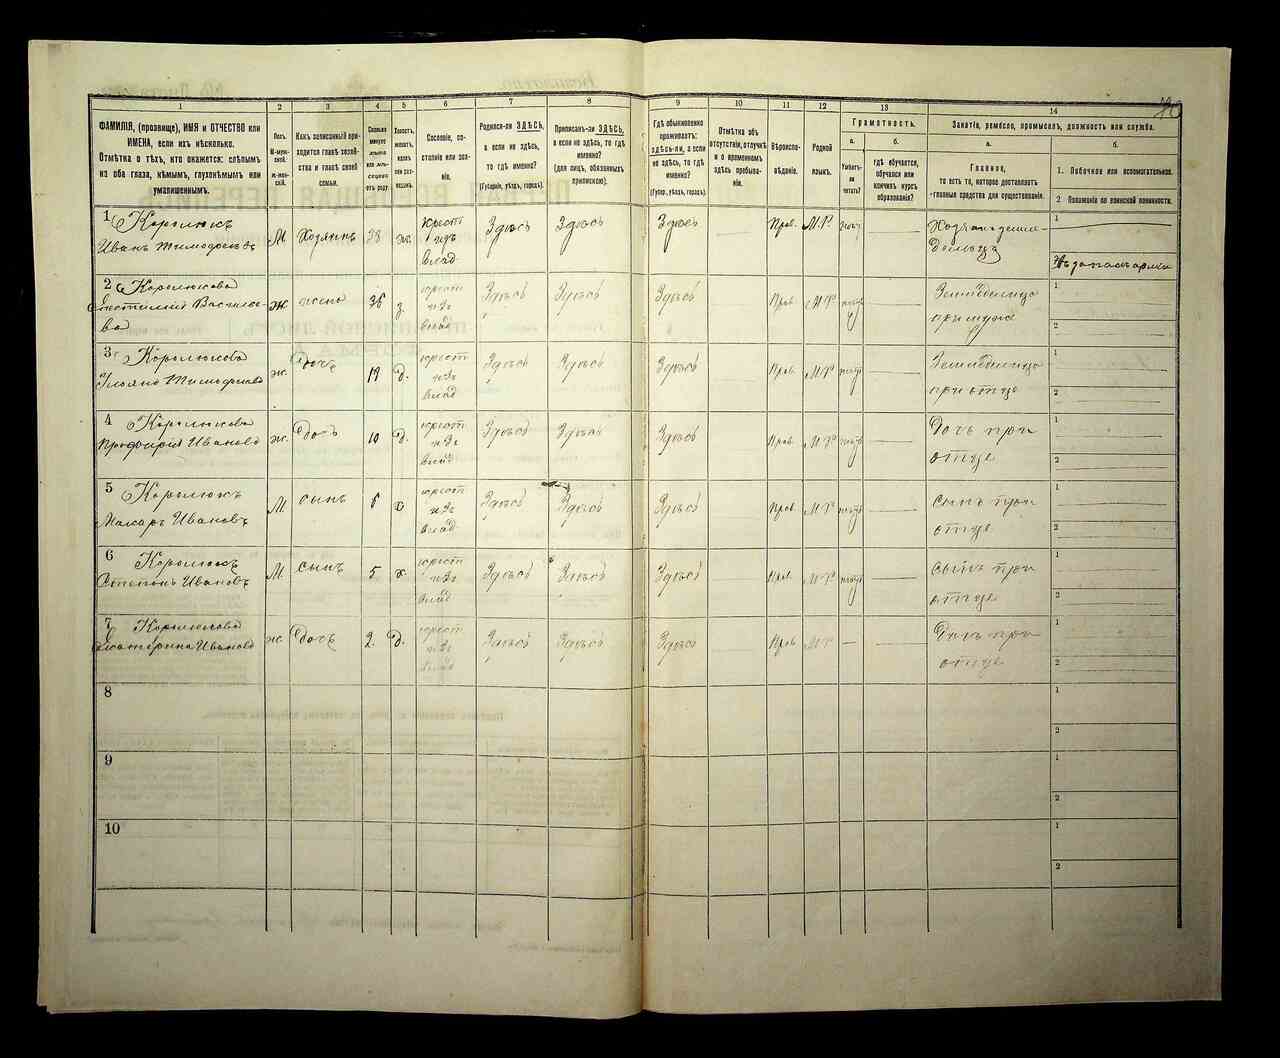 80
1
2
3
4
5
6
7
8
9
10
11
12
13
14
ФАМИЛІЯ, (прозвище), ИМЯ и ОТЧЕСТВО или
ИМЕНА, если ихъ нѣсколько.
Отмѣтка о тѣхъ, кто окажется: слѣпымъ
на оба глаза, нѣмымъ, глухонѣмымъ или
умалишеннымъ.
Полъ.
М-муж-
ской.
ж-жен-
скій.
Какъ записанный при-
ходится главѣ хозяй-
ства и главѣ своей
семьи.
Сколько
минуло
лѣтъ
или мѣ-
сяцевъ
отъ роду.
Холостъ,
женатъ,
вдовъ
или раз-
веденъ.
Сословіе, со-
стояніе или зва-
ніе.
Родился-ли ЗДѢСЬ,
а если не здѣсь,
то гдѣ именно?
(Губернія, уѣздъ, городъ).
Приписанъ-ли ЗДѢСЬ,
а если не здѣсь, то гдѣ
именно?
(для лицъ, обязанныхъ
припиской).
Гдѣ обыкновенно
проживаетъ:
здѣсь-ли, а если
не здѣсь, то гдѣ
именно?
(Губер., уѣздъ, городъ).
Отмѣтка объ
отсутствіи, отлучкѣ
и о временномъ
здѣсь пребыва-
ніи.
Вѣроиспо-
вѣданіе.
Родной
языкъ.
Грамотность.
а.
Умѣетъ-
ли
читать?
б.
гдѣ обучается,
обучался или
кончилъ курсъ
образованія?
Занятіе, ремесло, промыселъ, должность или служба.
а.
Главное,
то есть то, которое доставляетъ
главныя средства для существованія.
б.
1. Побочное или вспомогательное.
2 Положеніе по воинской повинности.
1 Королюкъ
Иванъ Тимофеевъ
М Хозяинъ 38 ж.
крест
изъ
влад
Здѣсь Здѣсь Здѣсь Прав. М.Р.
1
2 Въ запасѣ арміи
2 Королюкова
Василье-
ва
ж жена 36 з.
крест
изъ
влад
Здѣсь Здѣсь Здѣсь Прав М.Р
Земледѣлица
при мужѣ
1
2
3 Королюкова
Ульяна Тимофеева
ж. дочь 19 д.
крест
изъ
влад
Здѣсь Здѣсь Здѣсь Прав М.Р
Земледѣлица
при отцѣ
1
2
4 Королюкова
Ивановa
ж. дочь 10 д.
крест
изъ
влад
Здѣсь Здѣсь Здѣсь Прав. М.Р
Дочь при
отцѣ
1
2
5 Королюкъ
Макаръ Ивановъ
М. сынъ 6 х
крест
изъ
влад
Здѣсь Здѣсь Здѣсь Прав. М.Р
Сынъ при
отцѣ
1
2
6 Королюкъ
Степанъ Ивановъ
М. сынъ 5 х.
крест
изъ
влад
Здѣсь Здѣсь Здѣсь Прав. М.Р
Сынъ при
отцѣ
1
2
7 Королюкова
Екатерина Иванова
ж. дочь 2. д.
крест
изъ
влад
Здѣсь Здѣсь Здѣсь Прав М.Р
Дочь при
отцѣ
1
2
8
1
2
9
1
2
10
1
2